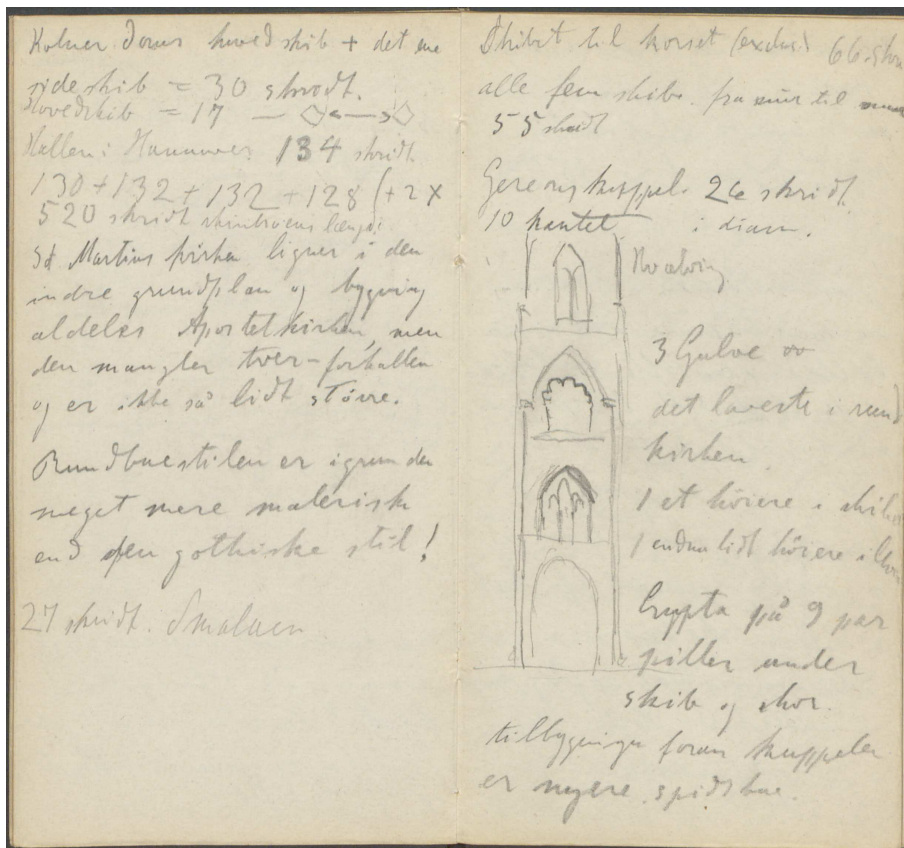 Kolner Doms hovedskib + det ene
sideskib = 30 skridt.
Hovedskib = 17 —
Hallen i Hannover 134 skridt.
130 + 132 + 132 + 128 (+ 2 x
520 skridt længde
St Martins kirken ligner i den
indre grundplan og bygning
aldeles Apostelkirken, men
den mangler tver-forhallen
og er ikke så lidt större.
Rundbuestilen er i grunden
meget mere malerisk
end den gothiske stil!
27 skridt. Smalnen
Skibet til korset (exclus) 66 skri
alle fem skibe. fra mur til mur
55 skridt
Gereonskuppel. 26 skridt
10 kantet i diam.
Hvælving
3 Gulve
det laveste i rund
kirken
1 et höiere i skibet
1 endnu lidt höiere i
Crypta på 9 par
piller under
skib og chor.
tilbygningen foran kuppelen
er nyere spidsbue.